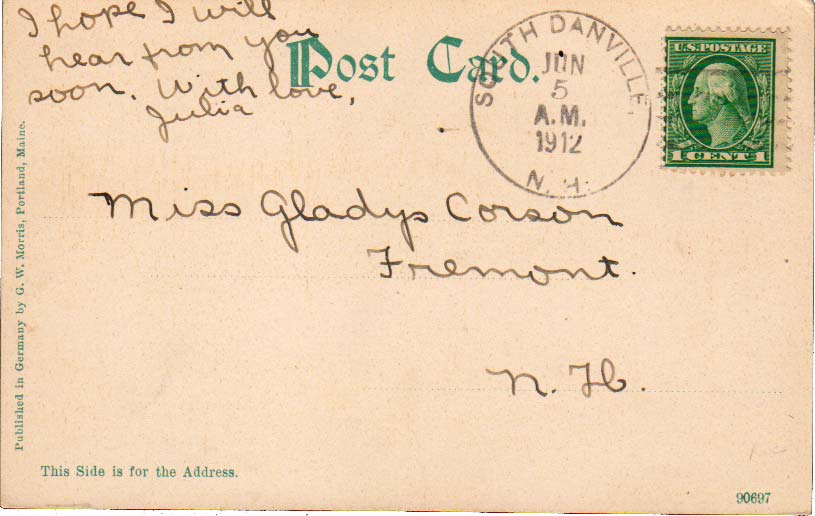 I hope I will
hear from you
soon. With love,
Julia
Post Card.
SOUTH DANVILLE,
JUN
5
A.M.
1912
N. H.
U.S. POSTAGE
1 CENT 1
Miss Gladys Corson
Fremont.
N. H.
Published in Germany by G. W. Morris, Portland, Maine.
This Side is for the Address.
90697